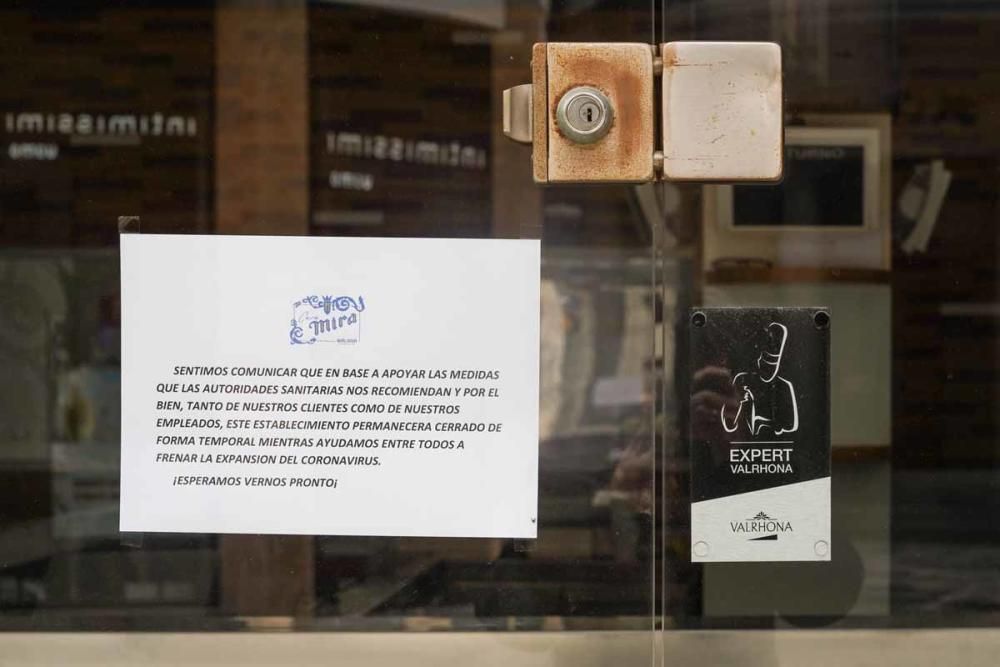 intimissimi
uomo
intimissimi
uomo
TURNO
Mira
SENTIMOS COMUNICAR QUE EN BASE A APOYAR LAS MEDIDAS
QUE LAS AUTORIDADES SANITARIAS NOS RECOMIENDAN Y POR EL
BIEN, TANTO DE NUESTROS CLIENTES COMO DE NUESTROS
EMPLEADOS, ESTE ESTABLECIMIENTO PERMANECERA CERRADO DE
FORMA TEMPORAL MIENTRAS AYUDAMOS ENTRE TODOS A
FRENAR LA EXPANSION DEL CORONAVIRUS.
¡ESPERAMOS VERNOS PRONTO¡
EXPERT
VALRHONA
VALRHONA